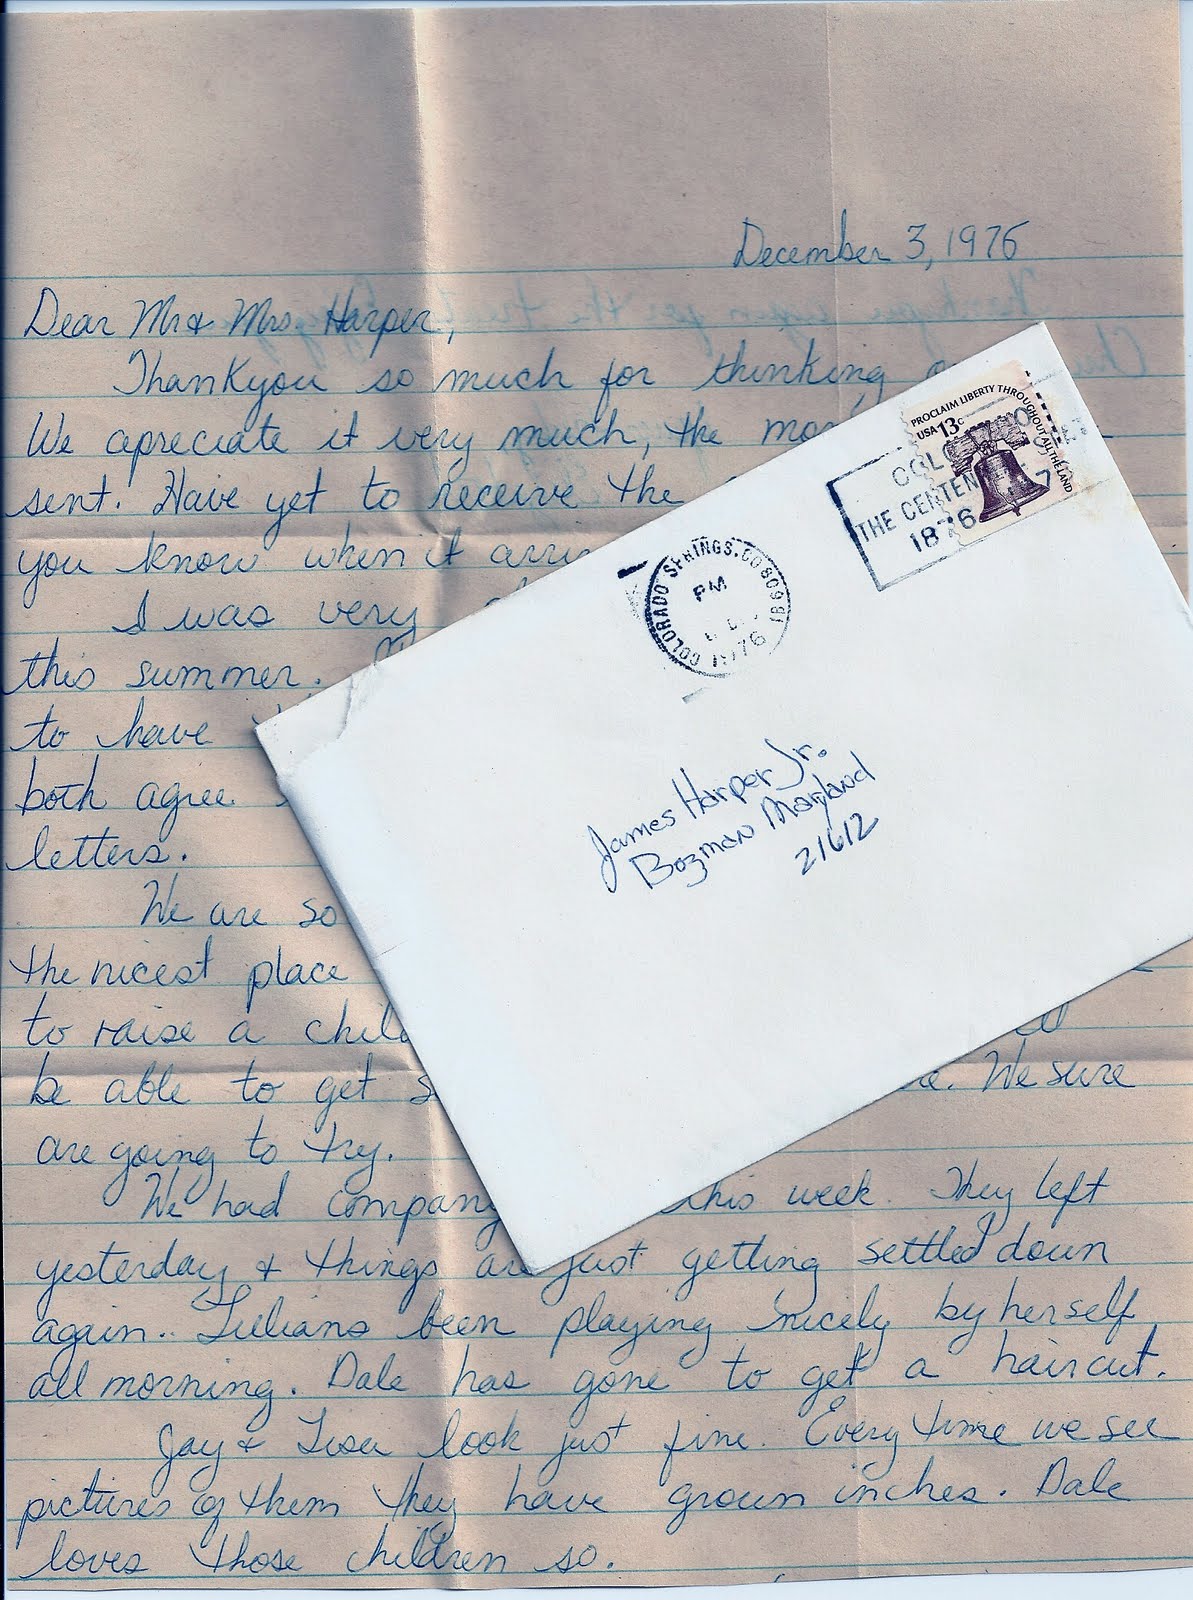 December 3, 1976
Dear Mr & Mrs. Harper,
Thankyou so much for thinking
We apreciate it very much, the
sent. Have yet to receive the
you know when it
I was very
this summer.
to have
both agree
letters.
We are so
the nicest place
to raise a
be able to get We sure
are going to try.
We had company this week. They left
yesterday & things are just getting settled down
again.. Lilians been playing nicely by herself
all morning. Dale has gone to get a haircut.
Jay & Lisa look just fine. Every time we see
pictures of them they have grown inches. Dale
loves those children so.
PROCLAIM LIBERTY THROUGHOUT ALL THE LAND
USA 13c
THE
1876
COLORADO SPRINGS, CO 809
PM
1976
James Harper Jr.
Bozman Maryland
21612